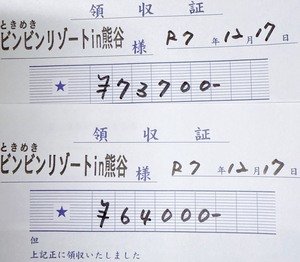 領収証
ときめき
ビンビンリゾートin熊谷 様 R7年12月17日
★ ¥73700-
領収証
ときめき
ビンビンリゾートin熊谷 様 R7年12月17日
★ ¥64000-
但
上記正に領収いたしました